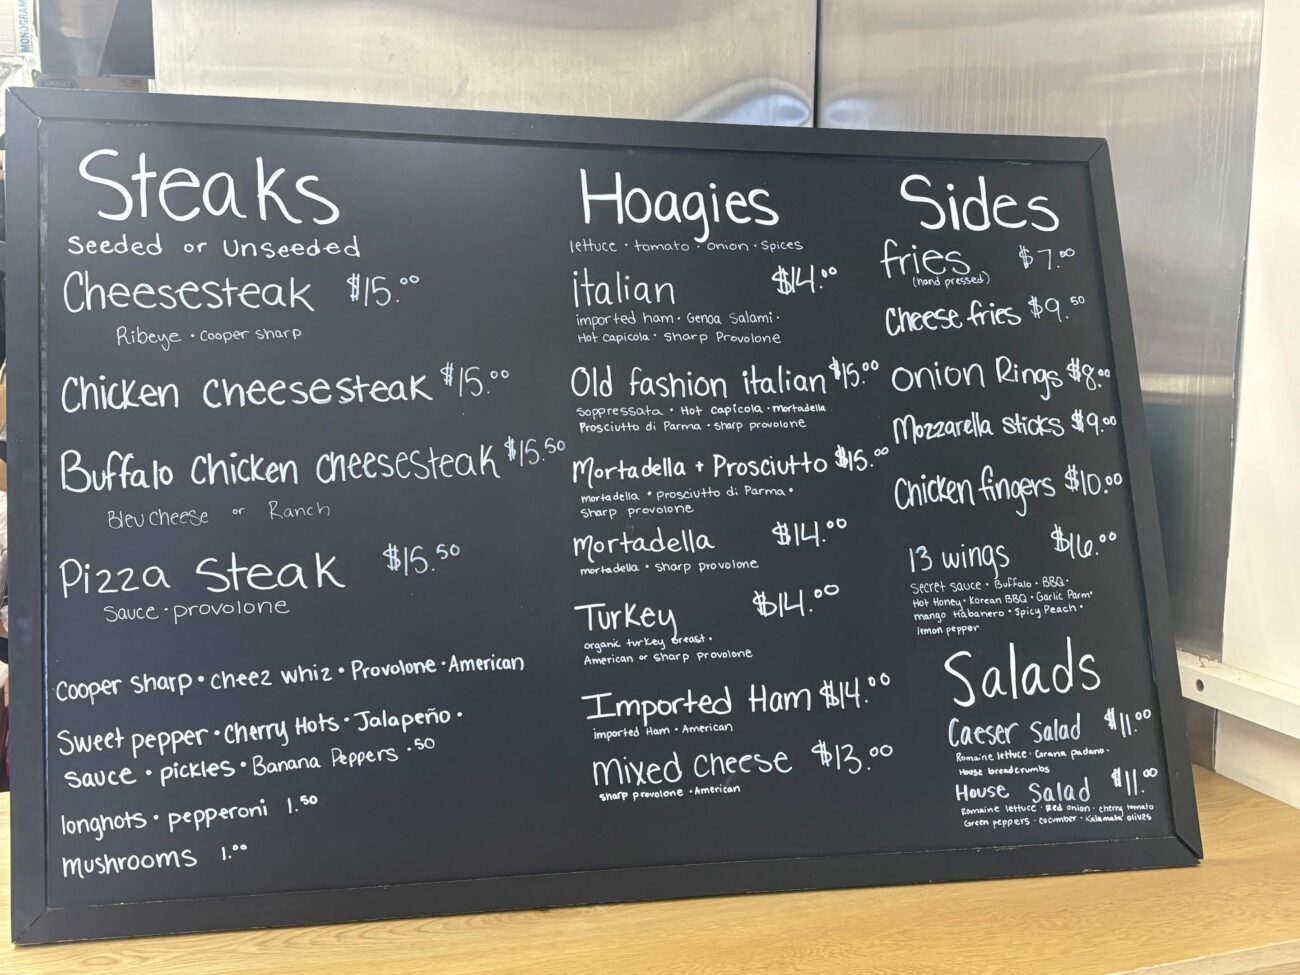 MONOGRAM
Steaks
Seeded or Unseeded
Cheesesteak $15.00
Ribeye · Cooper sharp
Chicken cheesesteak $15.00
Buffalo Chicken cheesesteak $15.50
Bleu Cheese or Ranch
Pizza Steak $15.50
Sauce · provolone
Cooper sharp · cheez whiz · Provolone · American
Sweet pepper · Cherry Hots · Jalapeño ·
sauce · pickles · Banana Peppers .50
longhots · pepperoni 1.50
mushrooms 1.00
Hoagies
lettuce · tomato · onion · spices
italian $14.00
imported ham · Genoa Salami ·
Hot capicola · sharp Provolone
Old fashion italian $15.00
soppressata · Hot capicola · mortadella
Prosciutto di Parma · sharp provolone
Mortadella + Prosciutto $15.00
mortadella · prosciutto di Parma ·
sharp provolone
Mortadella $14.00
mortadella · sharp provolone
Turkey $14.00
organic turkey breast ·
American or sharp provolone
Imported Ham $14.00
imported Ham · American
mixed cheese $13.00
sharp provolone · American
Sides
fries $7.00
(hand pressed)
Cheese fries $9.50
Onion Rings $8.00
Mozzarella sticks $9.00
Chicken fingers $10.00
13 wings $16.00
secret sauce · Buffalo · BBQ ·
Hot Honey · Korean BBQ · Garlic Parm ·
mango Habanero · Spicy Peach ·
lemon pepper
Salads
Caeser Salad $11.00
Romaine lettuce · Grana padano ·
House breadcrumbs
House Salad $11.00
Romaine lettuce · Red onion · cherry tomato
Green peppers · cucumber · Kalamata olives